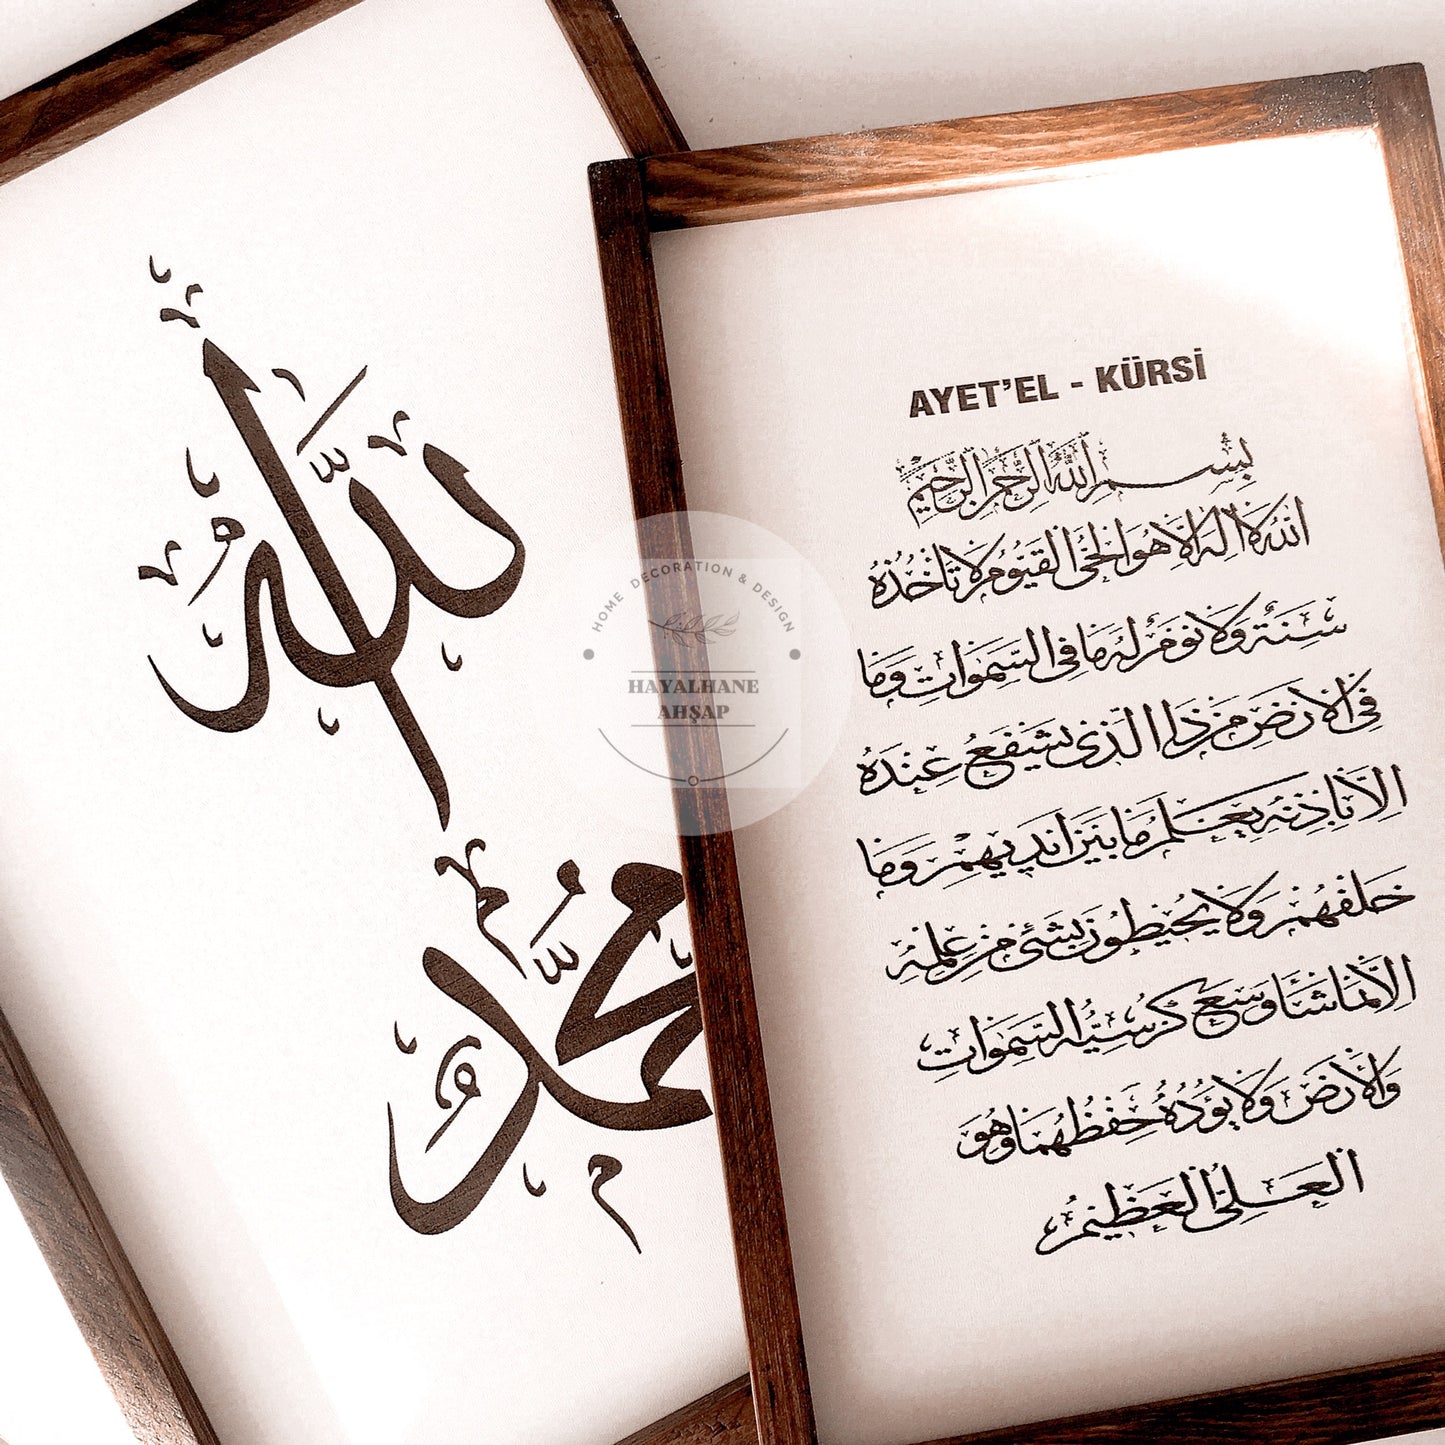 الله
محمد
AYET'EL - KÜRSİ
بسم الله الرحمن الرحيم
الله لا اله الا هو الحي القيوم لا تأخذه
سنة ولا نوم له ما في السموات وما
في الارض من ذا الذي يشفع عنده
الا باذنه يعلم ما بين ايديهم وما
خلفهم ولا يحيطون بشئ من علمه
الا بما شاء وسع كرسيه السموات
والارض ولا يؤده حفظهما وهو
العلي العظيم
HOME DECORATION & DESIGN
HAYALHANE
AHŞAP